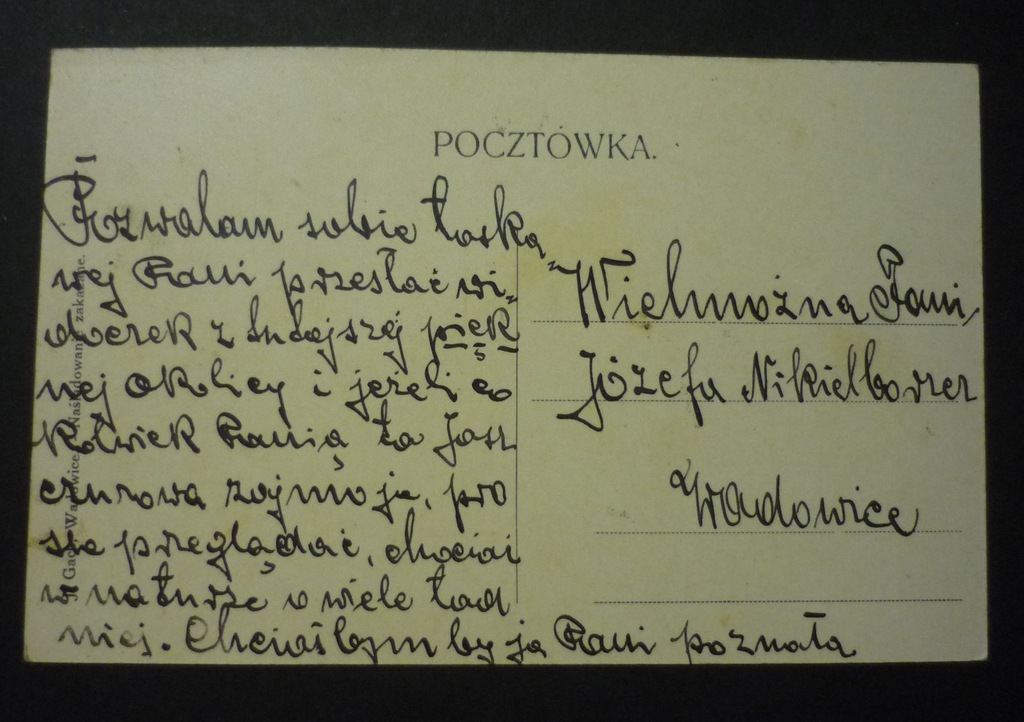 POCZTÓWKA.
Pozwalam sobie łaska„
wej Pani przesłać wi„
doczek z tutejszej pięk
nej okolicy i jeżeli co
kolwiek Panią ta Jasz
czurowa zajmuje, pro
szę przeglądać, chociaż
w naturze o wiele ład
niej. Chciałbym by ją Pani poznała
Wielmożna Pani
Józefa Nikielborzec
Wadowice
Wadowice. Naśladowanie zakazane.